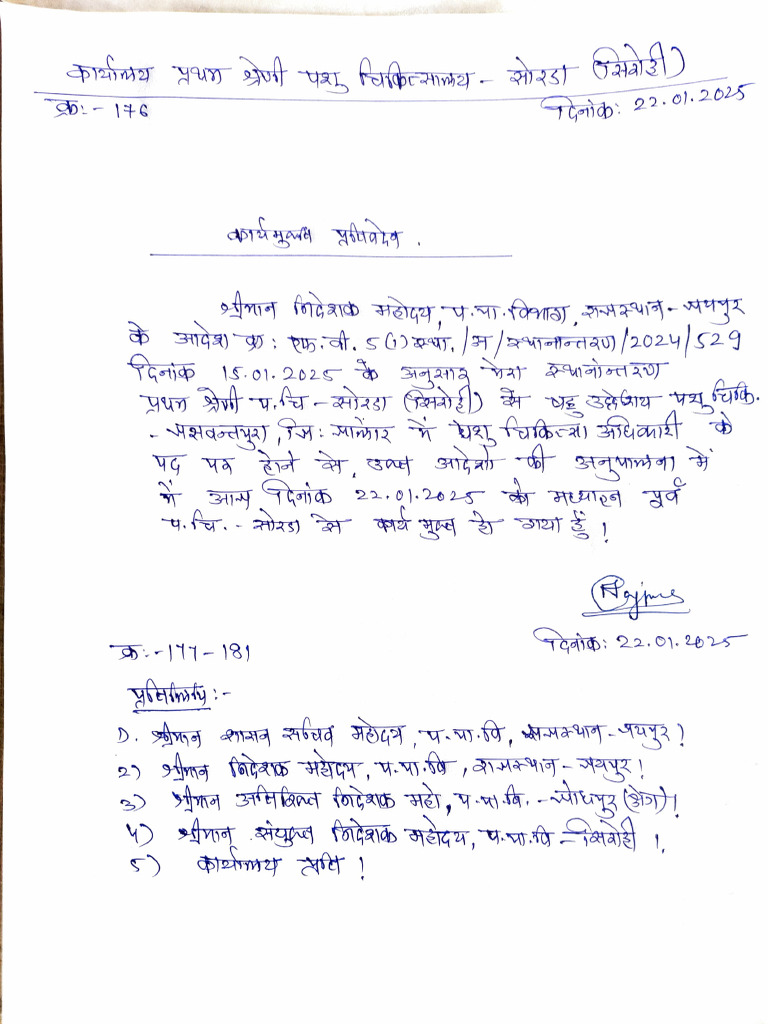 कार्यालय प्रथम श्रेणी पशु चिकित्सालय - सोरडा (सिरोही)
क्र:- 176 दिनांक: 22.01.2025
कार्यमुक्त प्रतिवेदन .
श्रीमान निदेशक महोदय, प.पा.विभाग, राजस्थान - जयपुर
के आदेश क्र: एफ.वी. 5(1) स्था./म/स्थानान्तरण/2024/529
दिनांक 15.01.2025 के अनुसार मेरा स्थानांन्तरण
प्रथम श्रेणी प.चि - सोरडा (सिरोही) से बहु उद्देशीय पशु चिकि.
- जसवन्तपुरा, जि: जालोर में पशु चिकित्सा अधिकारी के
पद पर होने से, उक्त आदेशो की अनुपालना में
में आज दिनांक 22.01.2025 को मध्याहन पूर्व
प.चि. - सोरडा से कार्य मुक्त हो गया हूँ !
दिनांक: 22.01.2025
क्र:-177-181
प्रतिलिपि:-
1). श्रीमान शासन सचिव महोदय, प.पा.वि, राजस्थान - जयपुर !
2) श्रीमान निदेशक महोदय, प.पा.वि, राजस्थान - जयपुर !
3) श्रीमान अतिरिक्त निदेशक महो, प.पा.वि. - जोधपुर (क्षेत्र) !
4) श्रीमान संयुक्त निदेशक महोदय, प.पा.वि - सिरोही !
5) कार्यालय प्रति !